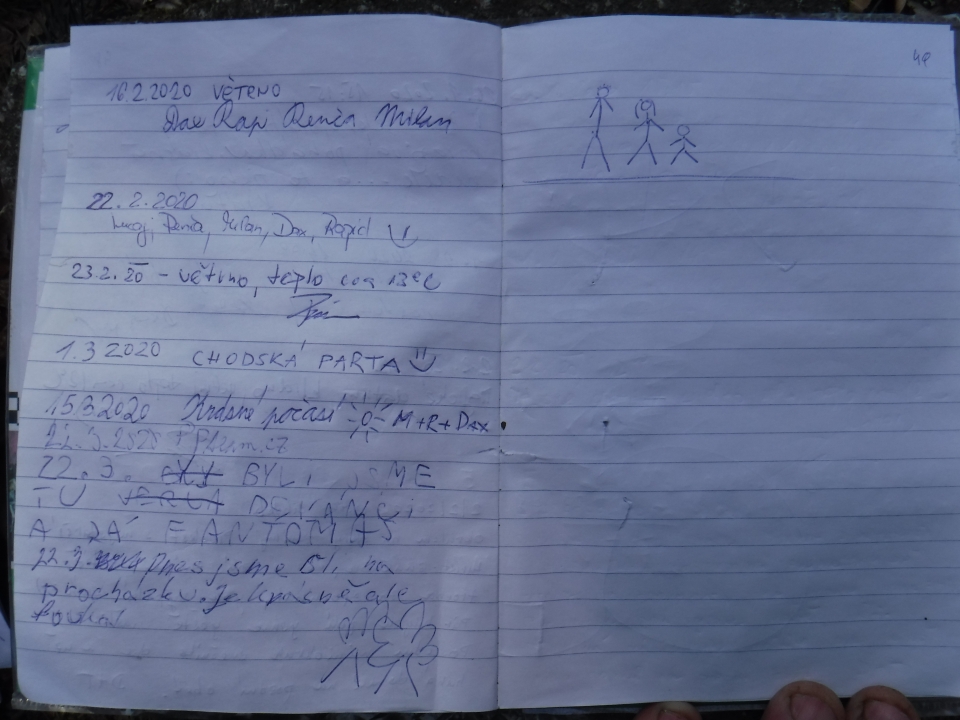 16.2.2020 VĚTRNO
Dax Rapi Renča Milan
22.2.2020
Renča, Milan, Dax, Rapid
23.2.20 - větrno, teplo cca 13°C
1.3 2020 CHODSKÁ PARTA
15.3.2020 Krásné počasí M+R+DAX
22.3.2020
22.3. BYLI JSME
TU DEKÁNČI
A JÁ FANTOMAS
22.3. Dnes jsme byli na
procházku. Je krásně ale
fouká
48